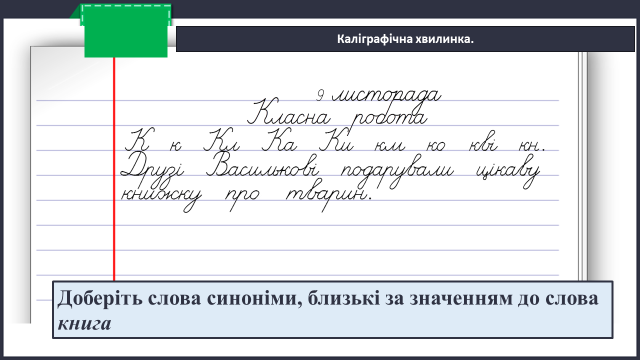 Каліграфічна хвилинка.
9 листопада
Класна робота
К к Кл Ка Ки км ко кві кн.
Друзі Василькові подарували цікаву
книжку про тварин.
Доберіть слова синоніми, близькі за значенням до слова
книга